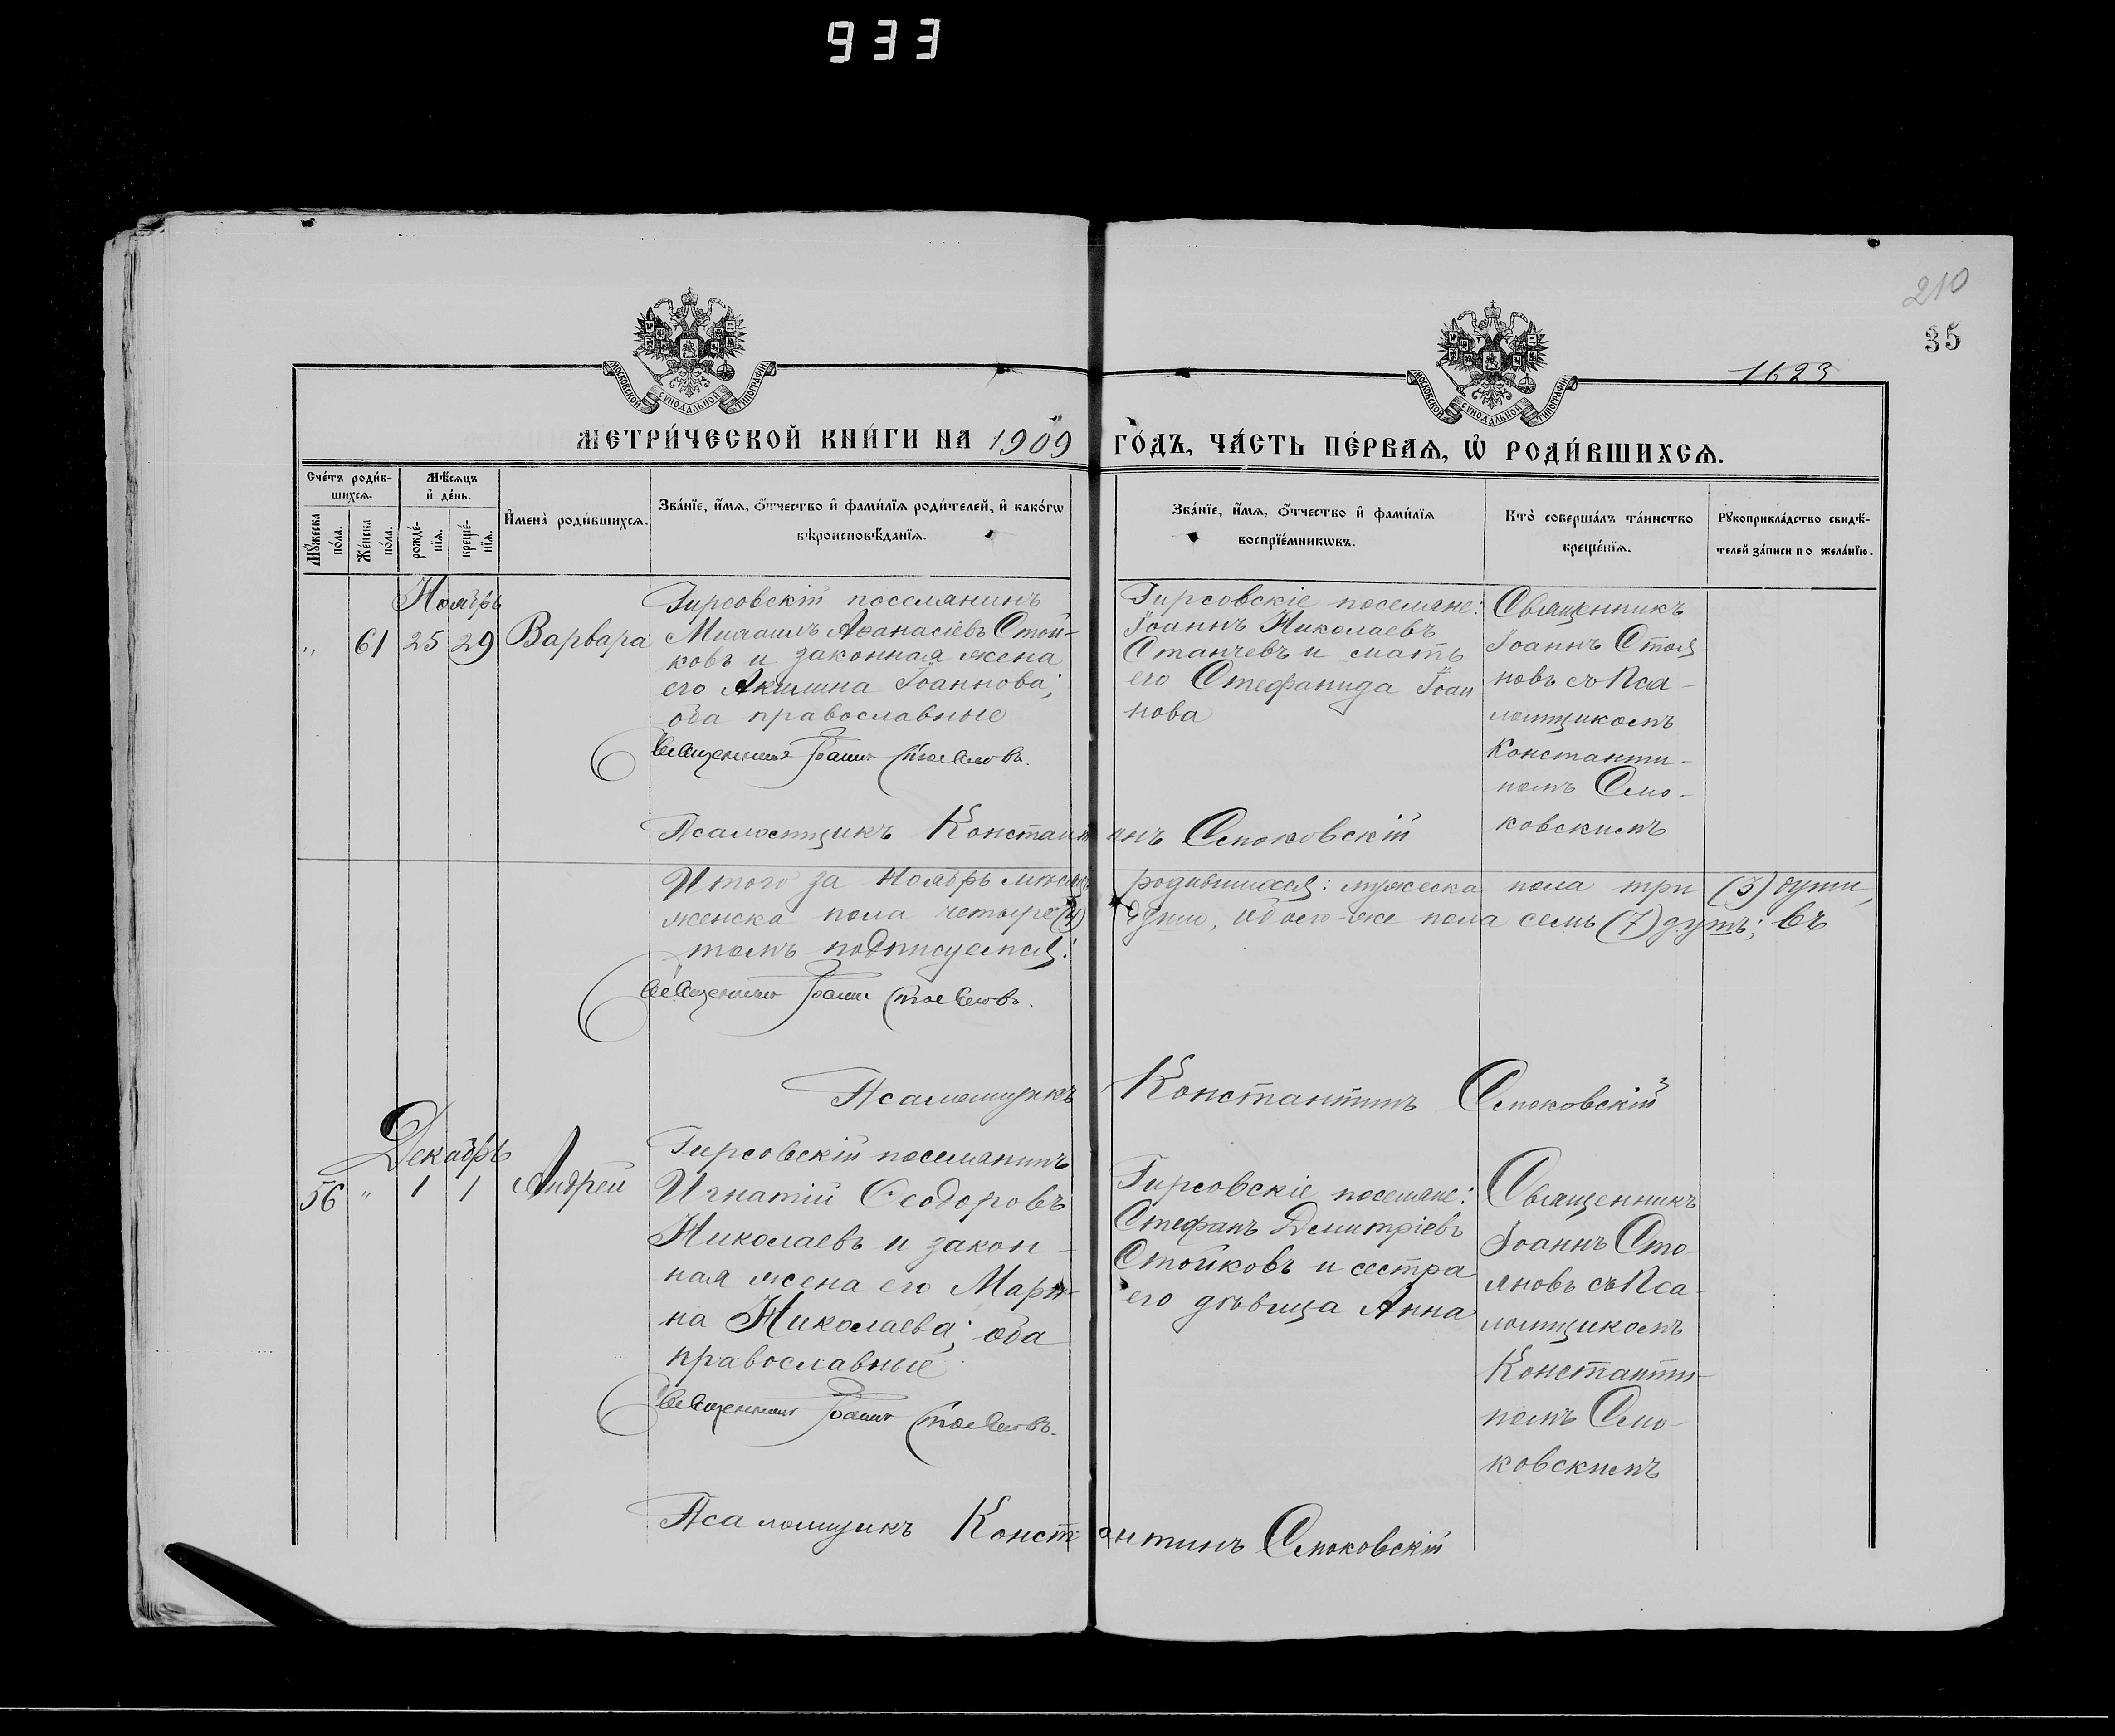 933
210
35
1623
МОСКОВСКОЙ СУНОДАЛЬНОЙ ТИПОГРАФІИ
МОСКОВСКОЙ СУНОДАЛЬНОЙ ТИПОГРАФІИ
МЕТРИ́ЧЕСКОЙ КНИ́ГИ НА 1909 ГО́ДЪ, ЧА́СТЬ ПЕ́РВАѦ, Ѡ҆ РОДИ́ВШИХСѦ.
Сче́тъ роди́в-
шихсѧ.
Мꙋ́жеска
по́ла.
Же́нска
по́ла.
Мѣ́сѧцъ
и҆ де́нь.
рожде́-
нїѧ.
креще́-
нїѧ.
И҆мена̀ роди́вшихсѧ.
Зва́нїе, и҆́мѧ, ѻ҆́тчество и҆ фами́лїѧ роди́телей, и҆ како́гѡ
вѣроисповѣ́данїѧ.
Зва́нїе, и҆́мѧ, ѻ҆́тчество и҆ фами́лїѧ
воспрїе́мникѡвъ.
Кто̀ соверша́лъ та́инство
креще́нїѧ.
Рꙋкоприкла́дство свидѣ́-
телей за́писи по жела́нїю.
Ноябрь
„ 61 25 29 Варвара
Гирсовскій поселянинъ
Михаилъ Аѳанасіевъ Стой-
ковъ и законная жена
его Акилина Іоаннова;
оба православные
Священникъ Іоаннъ Стояновъ.
Гирсовскіе поселяне:
Іоаннъ Николаевъ
Станчевъ и мать
его Стефанида Іоан
нова
Священникъ
Іоаннъ Стоя
новъ съ Пса-
ломщикомъ
Константи-
номъ Смо-
ковскимъ
Псаломщикъ Константинъ Смоковскій
Итого за Ноябрь мѣсяцъ родившихся: мужеска пола три (3) души,
женска пола четыре (4) души, обоего-же пола семь (7) душъ; въ
томъ подписуемся:
Священникъ Іоаннъ Стояновъ.
Псаломщикъ Константинъ Смоковскій
Декабрь
56 „ 1 1 Андрей
Гирсовскій поселянинъ
Игнатій Ѳеодоровъ
Николаевъ и закон-
ная жена его Мари-
на Николаева; оба
православные
Священникъ Іоаннъ Стояновъ.
Гирсовскіе поселяне:
Стефанъ Димитріевъ
Стойковъ и сестра
его дѣвица Анна
Священникъ
Іоаннъ Сто-
яновъ съ Пса-
ломщикомъ
Константи-
номъ Смо-
ковскимъ
Псаломщикъ Константинъ Смоковскій